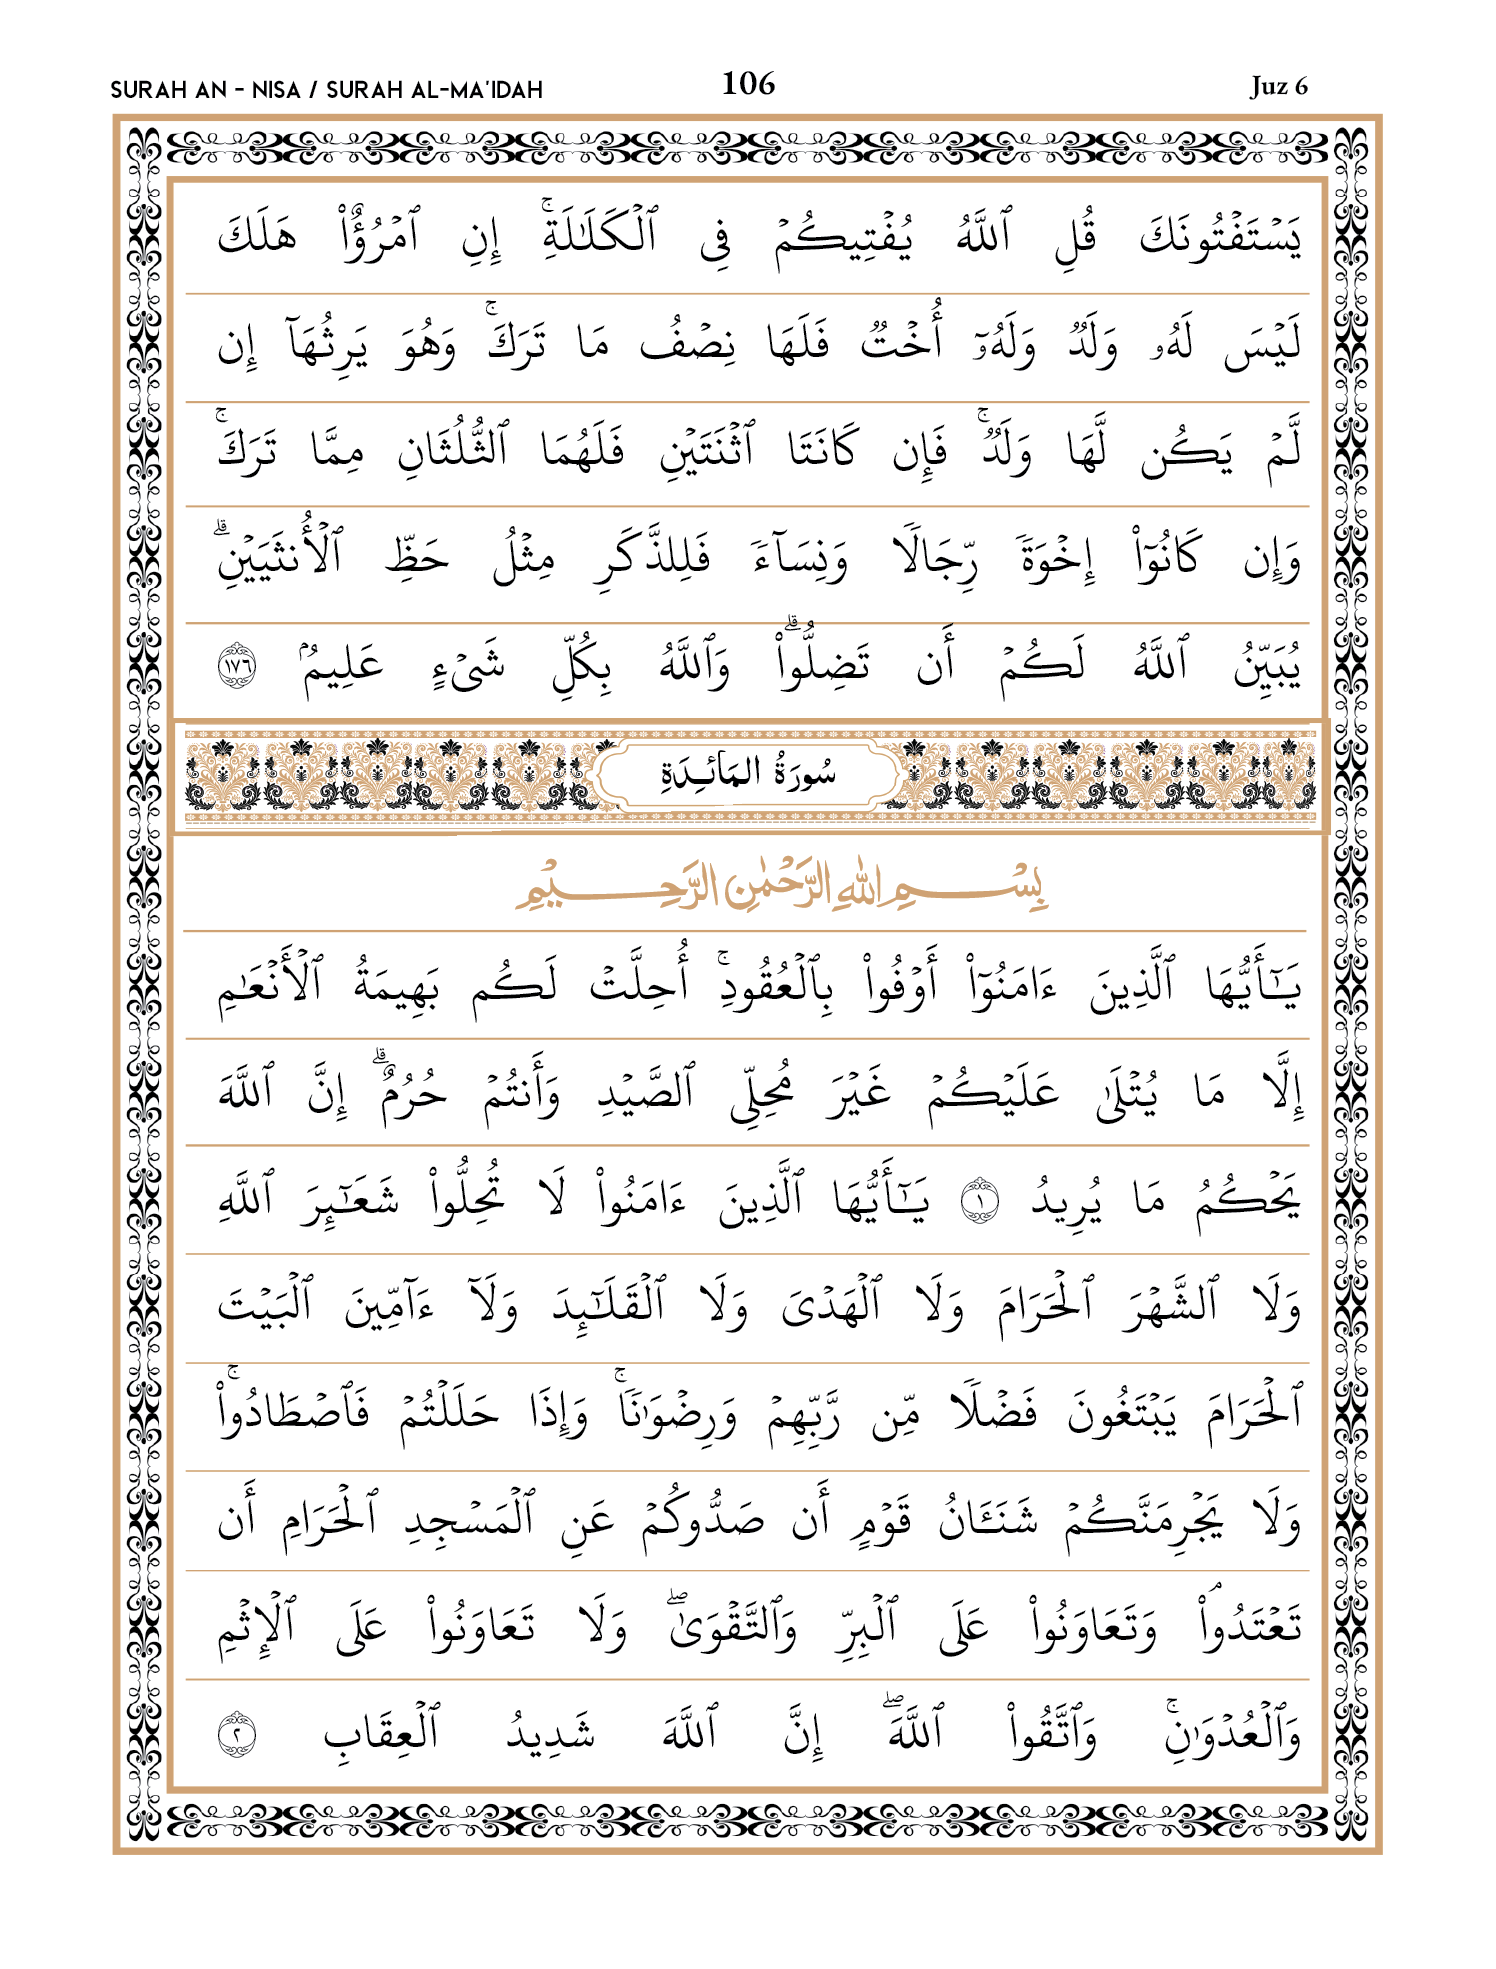 SURAH AN - NISA / SURAH AL-MA'IDAH 106 Juz 6
يَسۡتَفۡتُونَكَ قُلِ ٱللَّهُ يُفۡتِيكُمۡ فِي ٱلۡكَلَٰلَةِۚ إِنِ ٱمۡرُؤٌاْ هَلَكَ
لَيۡسَ لَهُۥ وَلَدٞ وَلَهُۥٓ أُخۡتٞ فَلَهَا نِصۡفُ مَا تَرَكَۚ وَهُوَ يَرِثُهَآ إِن
لَّمۡ يَكُن لَّهَا وَلَدٞۚ فَإِن كَانَتَا ٱثۡنَتَيۡنِ فَلَهُمَا ٱلثُّلُثَانِ مِمَّا تَرَكَۚ
وَإِن كَانُوٓاْ إِخۡوَةٗ رِّجَالٗا وَنِسَآءٗ فَلِلذَّكَرِ مِثۡلُ حَظِّ ٱلۡأُنثَيَيۡنِۗ
يُبَيِّنُ ٱللَّهُ لَكُمۡ أَن تَضِلُّواْۗ وَٱللَّهُ بِكُلِّ شَيۡءٍ عَلِيمُۢ ١٧٦
سُورَةُ المَائـِدَةِ
بِسْمِ اللهِ الرَّحْمٰنِ الرَّحِيْمِ
يَٰٓأَيُّهَا ٱلَّذِينَ ءَامَنُوٓاْ أَوۡفُواْ بِٱلۡعُقُودِۚ أُحِلَّتۡ لَكُم بَهِيمَةُ ٱلۡأَنۡعَٰمِ
إِلَّا مَا يُتۡلَىٰ عَلَيۡكُمۡ غَيۡرَ مُحِلِّي ٱلصَّيۡدِ وَأَنتُمۡ حُرُمٌۗ إِنَّ ٱللَّهَ
يَحۡكُمُ مَا يُرِيدُ ١ يَٰٓأَيُّهَا ٱلَّذِينَ ءَامَنُواْ لَا تُحِلُّواْ شَعَٰٓئِرَ ٱللَّهِ
وَلَا ٱلشَّهۡرَ ٱلۡحَرَامَ وَلَا ٱلۡهَدۡيَ وَلَا ٱلۡقَلَٰٓئِدَ وَلَآ ءَآمِّينَ ٱلۡبَيۡتَ
ٱلۡحَرَامَ يَبۡتَغُونَ فَضۡلٗا مِّن رَّبِّهِمۡ وَرِضۡوَٰنٗاۚ وَإِذَا حَلَلۡتُمۡ فَٱصۡطَادُواْۚ
وَلَا يَجۡرِمَنَّكُمۡ شَنَـَٔانُ قَوۡمٍ أَن صَدُّوكُمۡ عَنِ ٱلۡمَسۡجِدِ ٱلۡحَرَامِ أَن
تَعۡتَدُواْۘ وَتَعَاوَنُواْ عَلَى ٱلۡبِرِّ وَٱلتَّقۡوَىٰۖ وَلَا تَعَاوَنُواْ عَلَى ٱلۡإِثۡمِ
وَٱلۡعُدۡوَٰنِۚ وَٱتَّقُواْ ٱللَّهَۖ إِنَّ ٱللَّهَ شَدِيدُ ٱلۡعِقَابِ ٢